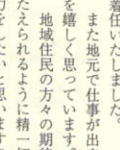 着任いたしました。
また地元で仕事が出
を嬉しく思っています。
地域住民の方々の期待
たえられるように精一
力をしたいと思います